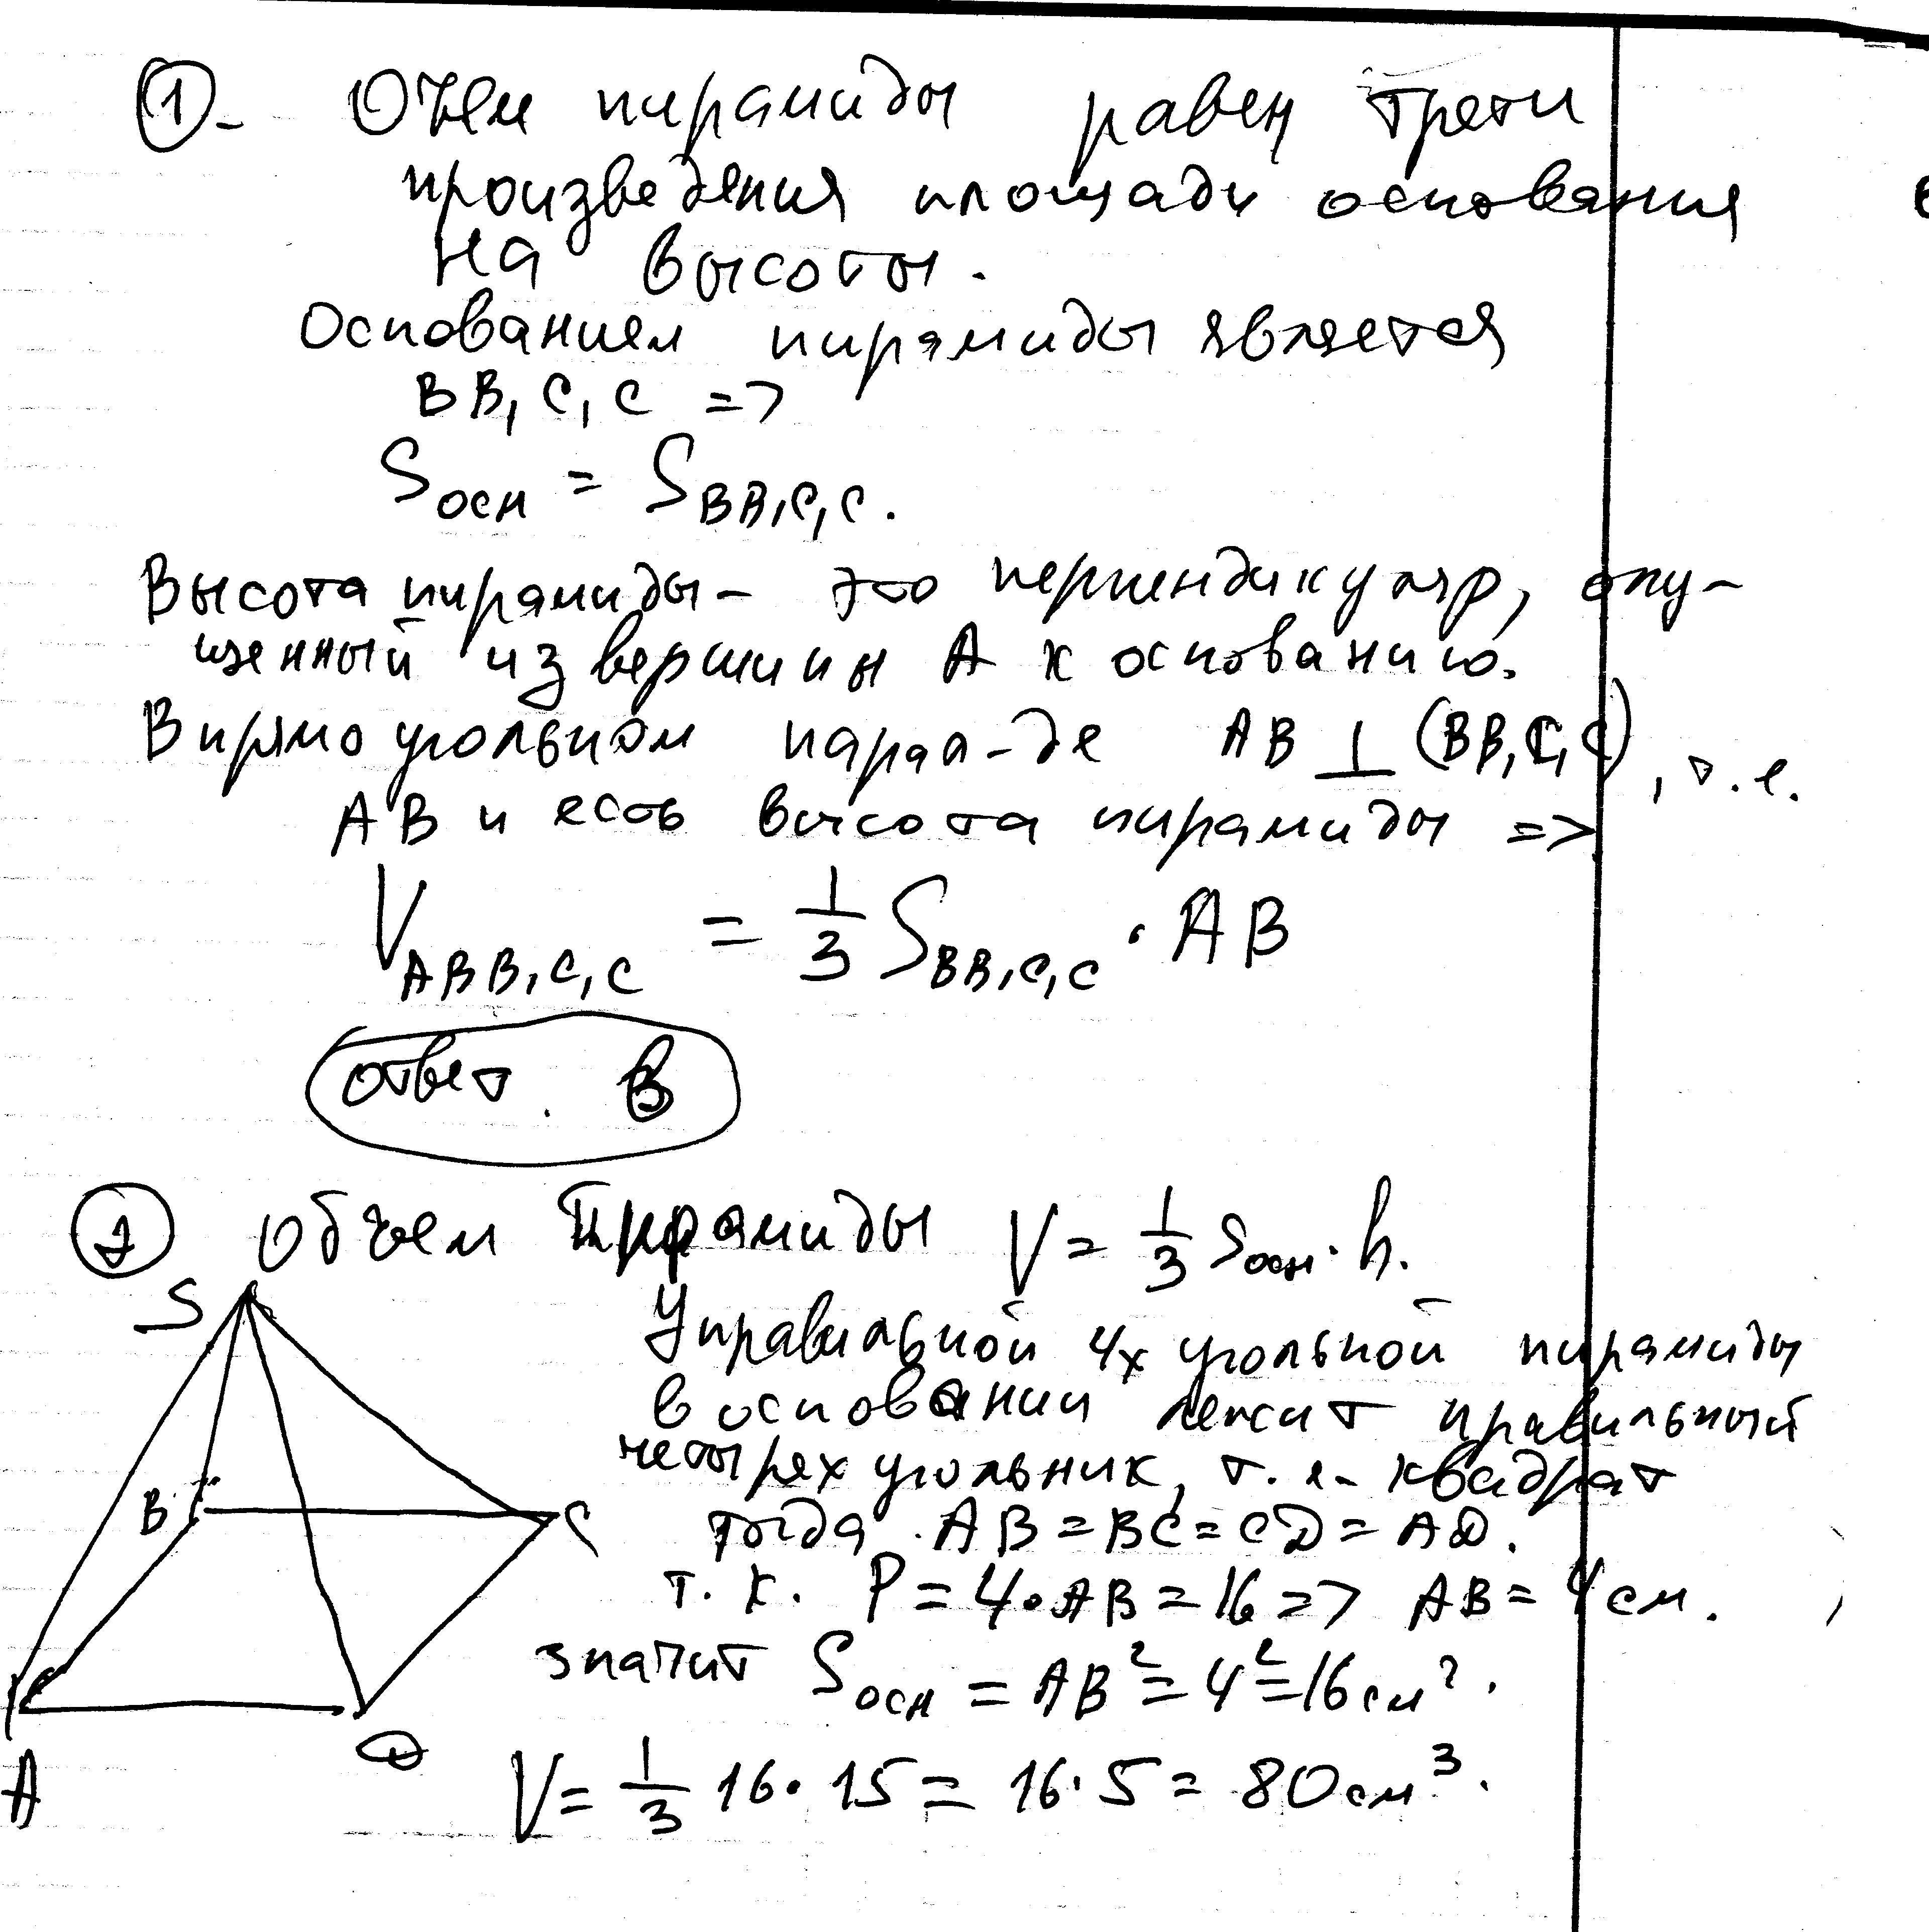 1. Очем пирамиды равен трети
произведения площади основания
на высоты.
Основанием пирамиды является
BB₁C₁C =>
Sосн = S_BB₁C₁C.
Высота пирамиды - это перпендикуляр, опу-
щенный из вершины A к основанию.
В прямоугольном парал-де AB ⊥ (BB₁C₁C), т.е.
AB и есть высота пирамиды =>
V_ABB₁C₁C = 1/3 S_BB₁C₁C · AB
ответ. В
2 Объем пирамиды V = 1/3 Sосн · h.
S
У правильной 4х угольной пирамиды
в основании лежит правильный
четырехугольник, т.е. квадрат
B C тогда AB = BC = CD = AD.
т.к. P = 4·AB = 16 => AB = 4 см.
значит Sосн = AB² = 4² = 16 см².
A D V = 1/3 16 · 15 = 16 · 5 = 80 см³.